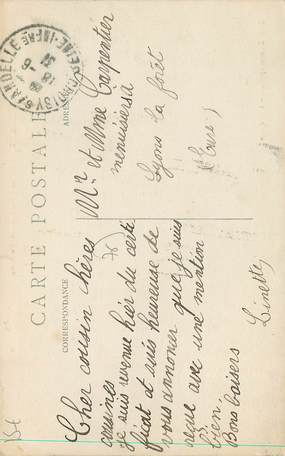 CARTE POSTALE
CORRESPONDANCE
Cher cousin chères
cousines
je suis revenue hier du certi
ficat et suis heureuse de
vous annoncer que je suis
reçue avec une mention
bien.
Bons baisers
Linette
ADRESSE
Mr et Mme Carpentier
menuisier à
Lyons la forêt
(Eure)
SUR ANDELLE
SEINE-INFRE